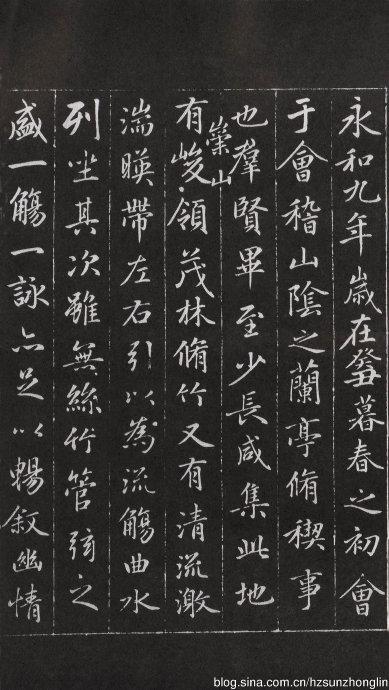 永和九年歲在癸丑暮春之初會
于會稽山陰之蘭亭脩禊事
也羣賢畢至少長咸集此地
有崇山峻領茂林脩竹又有清流激
湍暎帶左右引以為流觴曲水
列坐其次雖無絲竹管弦之
盛一觴一詠亦足以暢敘幽情
blog.sina.com.cn/hzsunzhonglin